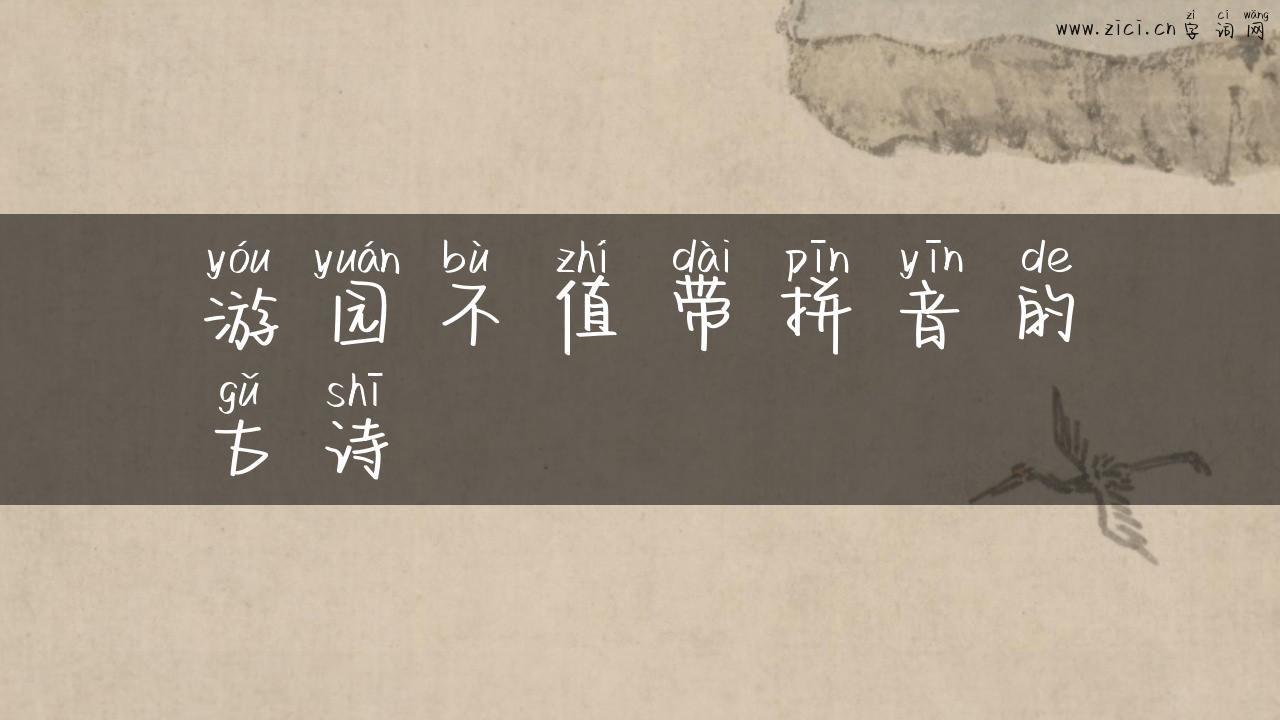 www.zici.cn 字词网
zì cí wǎng
yóu yuán bù zhí dài pīn yīn de
游园不值带拼音的
gǔ shī
古诗